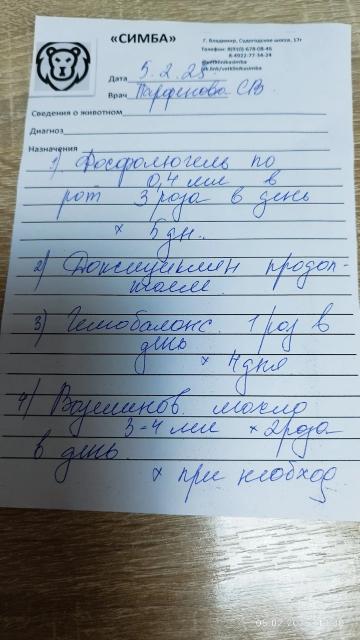 «СИМБА»
Г. Владимир, Судогодское шоссе, 17г
Телефон: 8(910) 678-08-46
8-4922-77-34-24
@vetklinikasimba
vk.link/vetklinikasimba
Дата 5.2.25
Врач Парфенова СВ
Сведения о животном
Диагноз
Назначения
1) Фосфолюгель по
0,4 мл в
рот 3 раза в день
× 5 дн.
2) Доксициклин продол-
жаем.
3) Гемобаланс. 1 раз в
день
× 4 дня
4) Вазелинов. масло
3-4 мл × 2 раза
в день
× при необход
05.02.2025